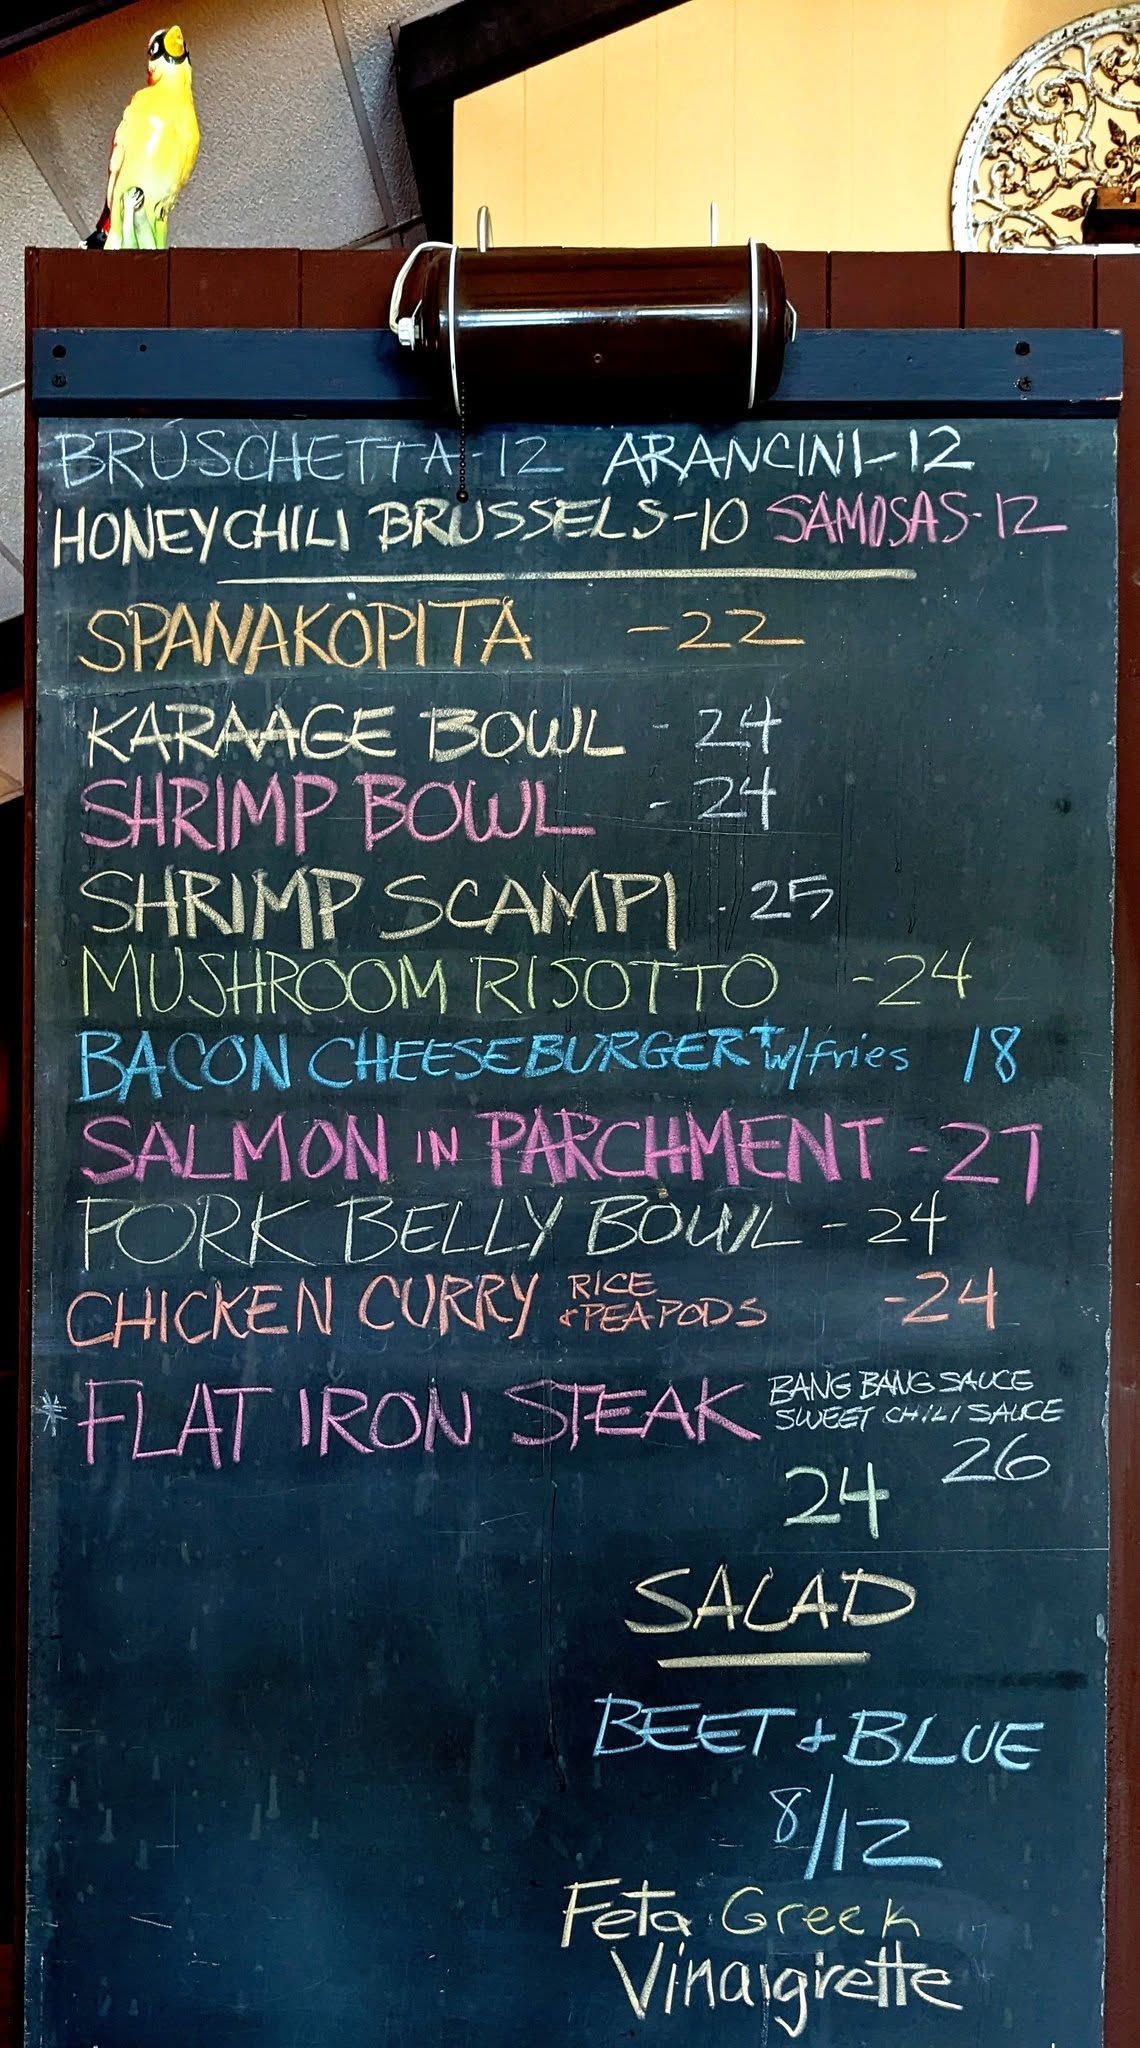 BRUSCHETTA-12 ARANCINI-12
HONEY CHILI BRUSSELS-10 SAMOSAS-12
SPANAKOPITA -22
KARAAGE BOWL - 24
SHRIMP BOWL - 24
SHRIMP SCAMPI - 25
MUSHROOM RISOTTO -24
BACON CHEESEBURGER+ w/fries 18
SALMON IN PARCHMENT -27
PORK BELLY BOWL - 24
CHICKEN CURRY RICE
&PEAPODS -24
*FLAT IRON STEAK BANG BANG SAUCE
SWEET CHILI SAUCE
26
24
SALAD
BEET & BLUE
8/12
Feta Greek
Vinaigrette